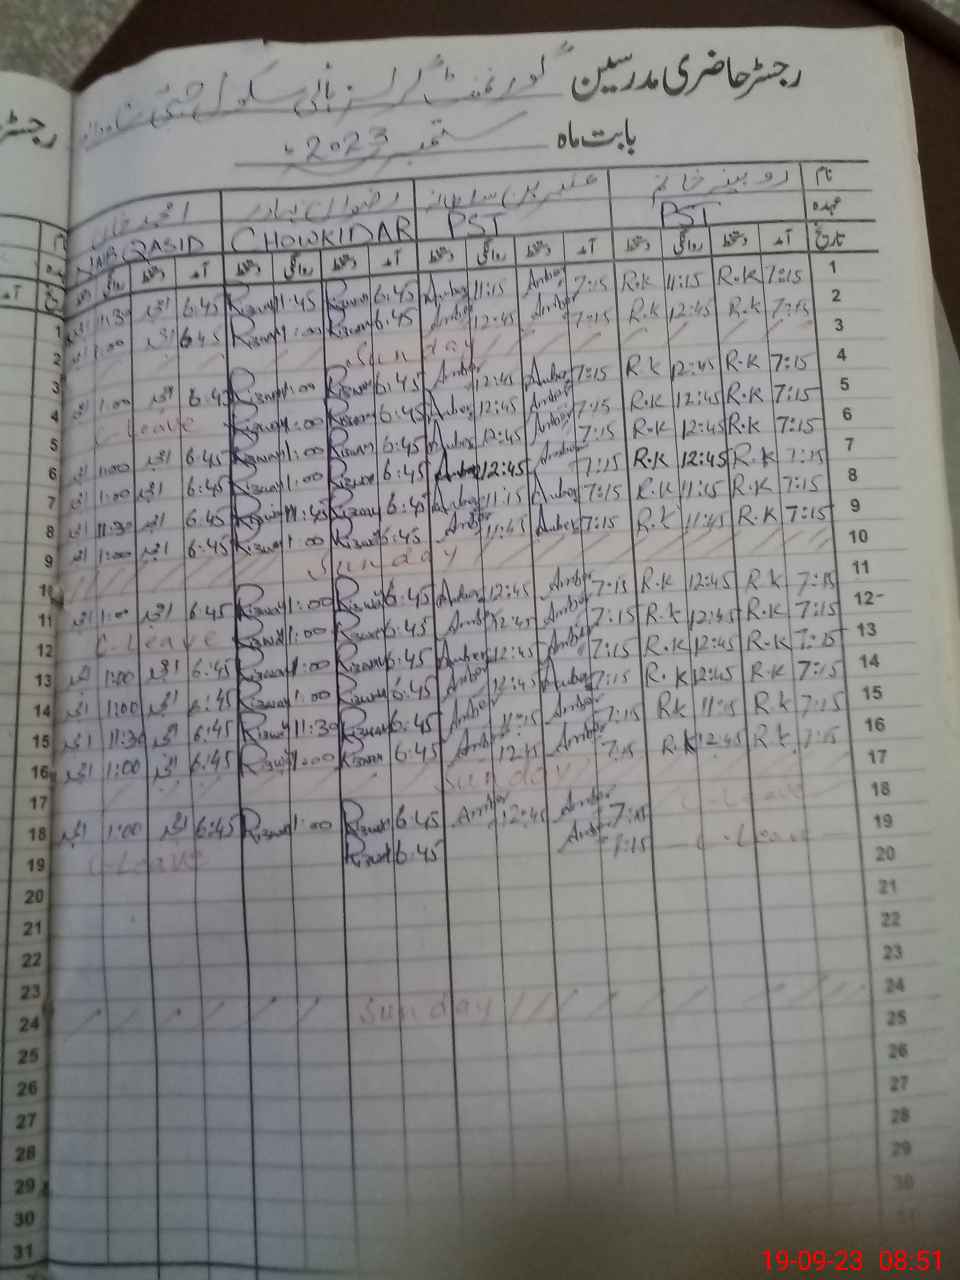 رجسٹر حاضری مدرسین گورنمنٹ گرلز ہائی سکول
بابت ماہ ستمبر 2023ء
نام روبینہ خانم عنبرین سلطانہ رضوان بہادر امجد خان
عہدہ PST PST CHOWKIDAR NAIB QASID
تاریخ آمد دستخط روانگی دستخط آمد دستخط روانگی دستخط آمد دستخط روانگی دستخط آمد دستخط روانگی دستخط
1 7:15 R.K 11:15 R.K 7:15 Amber 11:15 Amber 6:45 Rizwan 11:45 Rizwan 6:45 امجد 11:30 امجد 1
2 7:15 R.K 12:45 R.K 7:15 Amber 12:45 Amber 6:45 Rizwan 1:00 Rizwan 6:45 امجد 1:00 امجد 2
3 Sunday 3
4 7:15 R.K 12:45 R.K 7:15 Amber 12:45 Amber 6:45 Rizwan 1:00 Rizwan 6:45 امجد 1:00 امجد 4
5 7:15 R.K 12:45 R.K 7:15 Amber 12:45 Amber 6:45 Rizwan 1:00 Rizwan C-Leave 5
6 7:15 R.K 12:45 R.K 7:15 Amber 12:45 Amber 6:45 Rizwan 1:00 Rizwan 6:45 امجد 1:00 امجد 6
7 7:15 R.K 12:45 R.K 7:15 Amber 12:45 Amber 6:45 Rizwan 1:00 Rizwan 6:45 امجد 1:00 امجد 7
8 7:15 R.K 11:15 R.K 7:15 Amber 11:15 Amber 6:45 Rizwan 11:45 Rizwan 6:45 امجد 11:30 امجد 8
9 7:15 R.K 11:45 R.K 7:15 Amber 11:45 Amber 6:45 Rizwan 1:00 Rizwan 6:45 امجد 1:00 امجد 9
10 Sunday 10
11 7:15 R.K 12:45 R.K 7:15 Amber 12:45 Amber 6:45 Rizwan 1:00 Rizwan 6:45 امجد 1:00 امجد 11
12 7:15 R.K 12:45 R.K 7:15 Amber 12:45 Amber 6:45 Rizwan 1:00 Rizwan C-Leave 12
13 7:15 R.K 12:45 R.K 7:15 Amber 12:45 Amber 6:45 Rizwan 1:00 Rizwan 6:45 امجد 1:00 امجد 13
14 7:15 R.K 12:45 R.K 7:15 Amber 12:45 Amber 6:45 Rizwan 1:00 Rizwan 6:45 امجد 1:00 امجد 14
15 7:15 R.K 11:15 R.K 7:15 Amber 11:15 Amber 6:45 Rizwan 11:30 Rizwan 6:45 امجد 11:30 امجد 15
16 7:15 R.K 12:45 R.K 7:15 Amber 12:45 Amber 6:45 Rizwan 1:00 Rizwan 6:45 امجد 1:00 امجد 16
17 Sunday 17
18 C-Leave 7:15 Amber 12:45 Amber 6:45 Rizwan 1:00 Rizwan 6:45 امجد 1:00 امجد 18
19 C-Leave 7:15 Amber 6:45 Rizwan C-Leave 19
20 20
21 21
22 22
23 23
24 Sunday 24
25 25
26 26
27 27
28 28
29 29
30 30
31
19-09-23 08:51